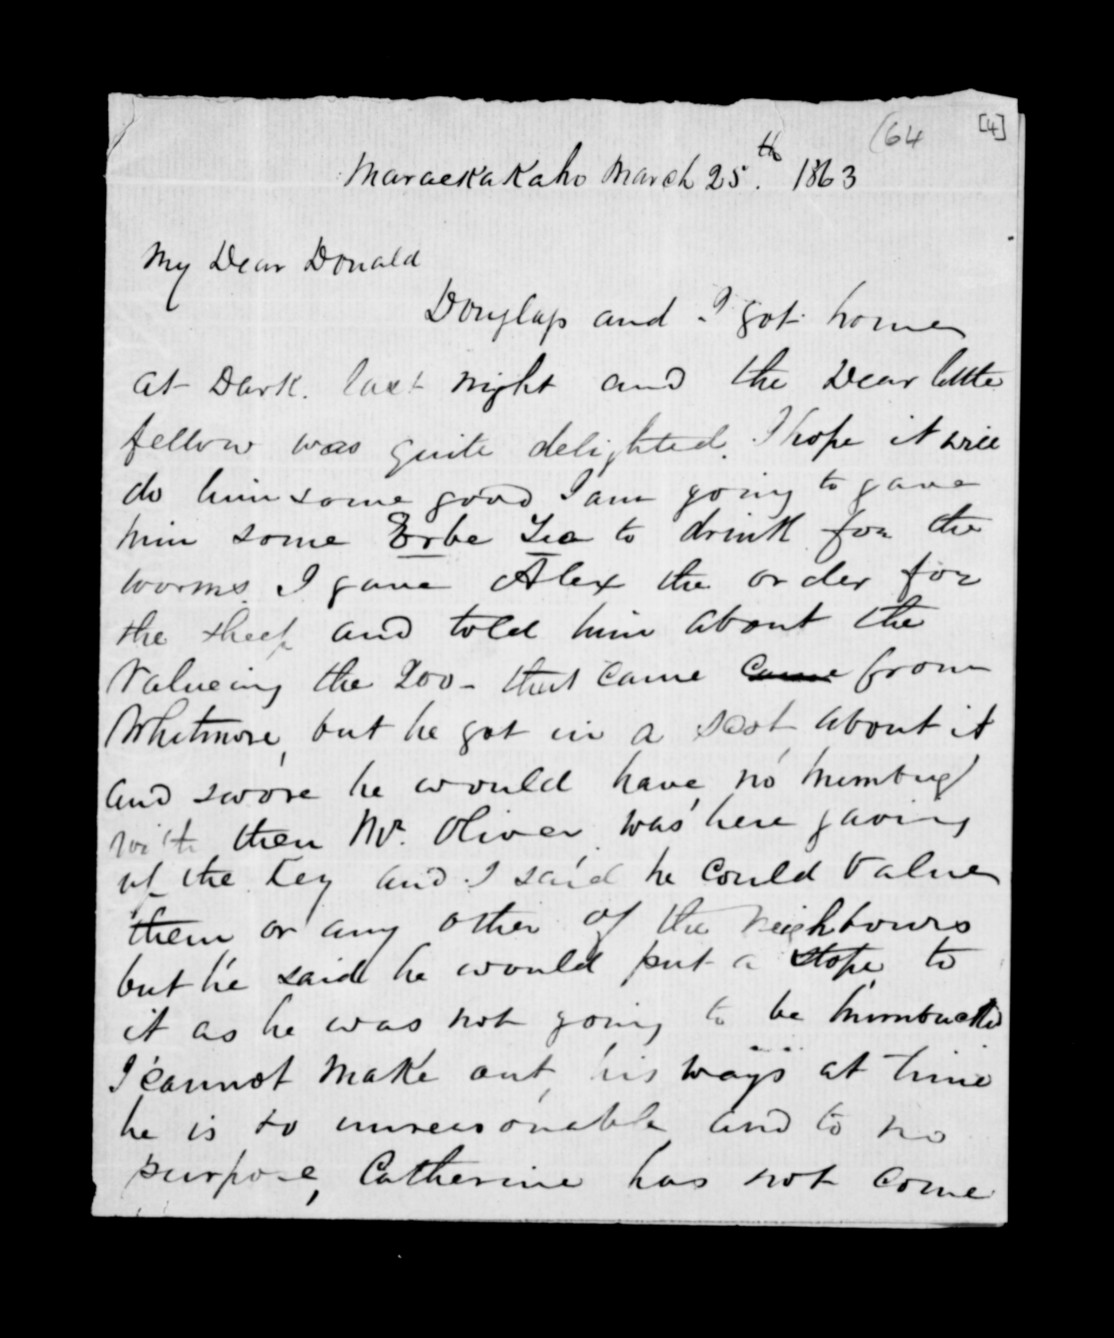 (64 [4]
Maraekakaho March 25th. 1863
My Dear Donald
Douglass and I got home
at Dark. last night and the Dear little
fellow was quite delighted. I hope it will
do him some good I am going to gave
him some Erbe Tea to drink for the
worms. I gave Alex the order for
the sheep and told him about the
Valueing the 200 - that came came from
Whitmore, but he got in a about it
and swore he would have no humbug
with them Mr. Oliver was here gaving
up the Key and I said he could Value
them or any other of the Neighbours
but he said he would put a stope to
it as he was not going to be
I cannot Make out his ways at time
he is so unreasonable and to no
purpose, Catherine has not come